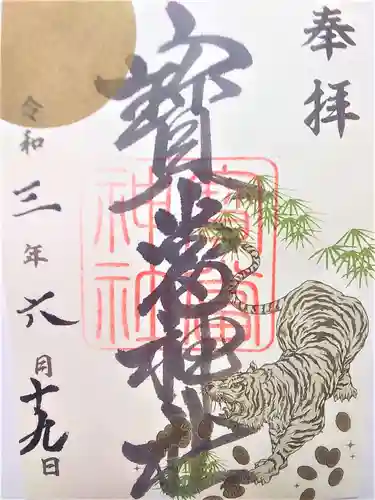 奉拝
寶當神社
令和三年六月十九日
寶當
神社